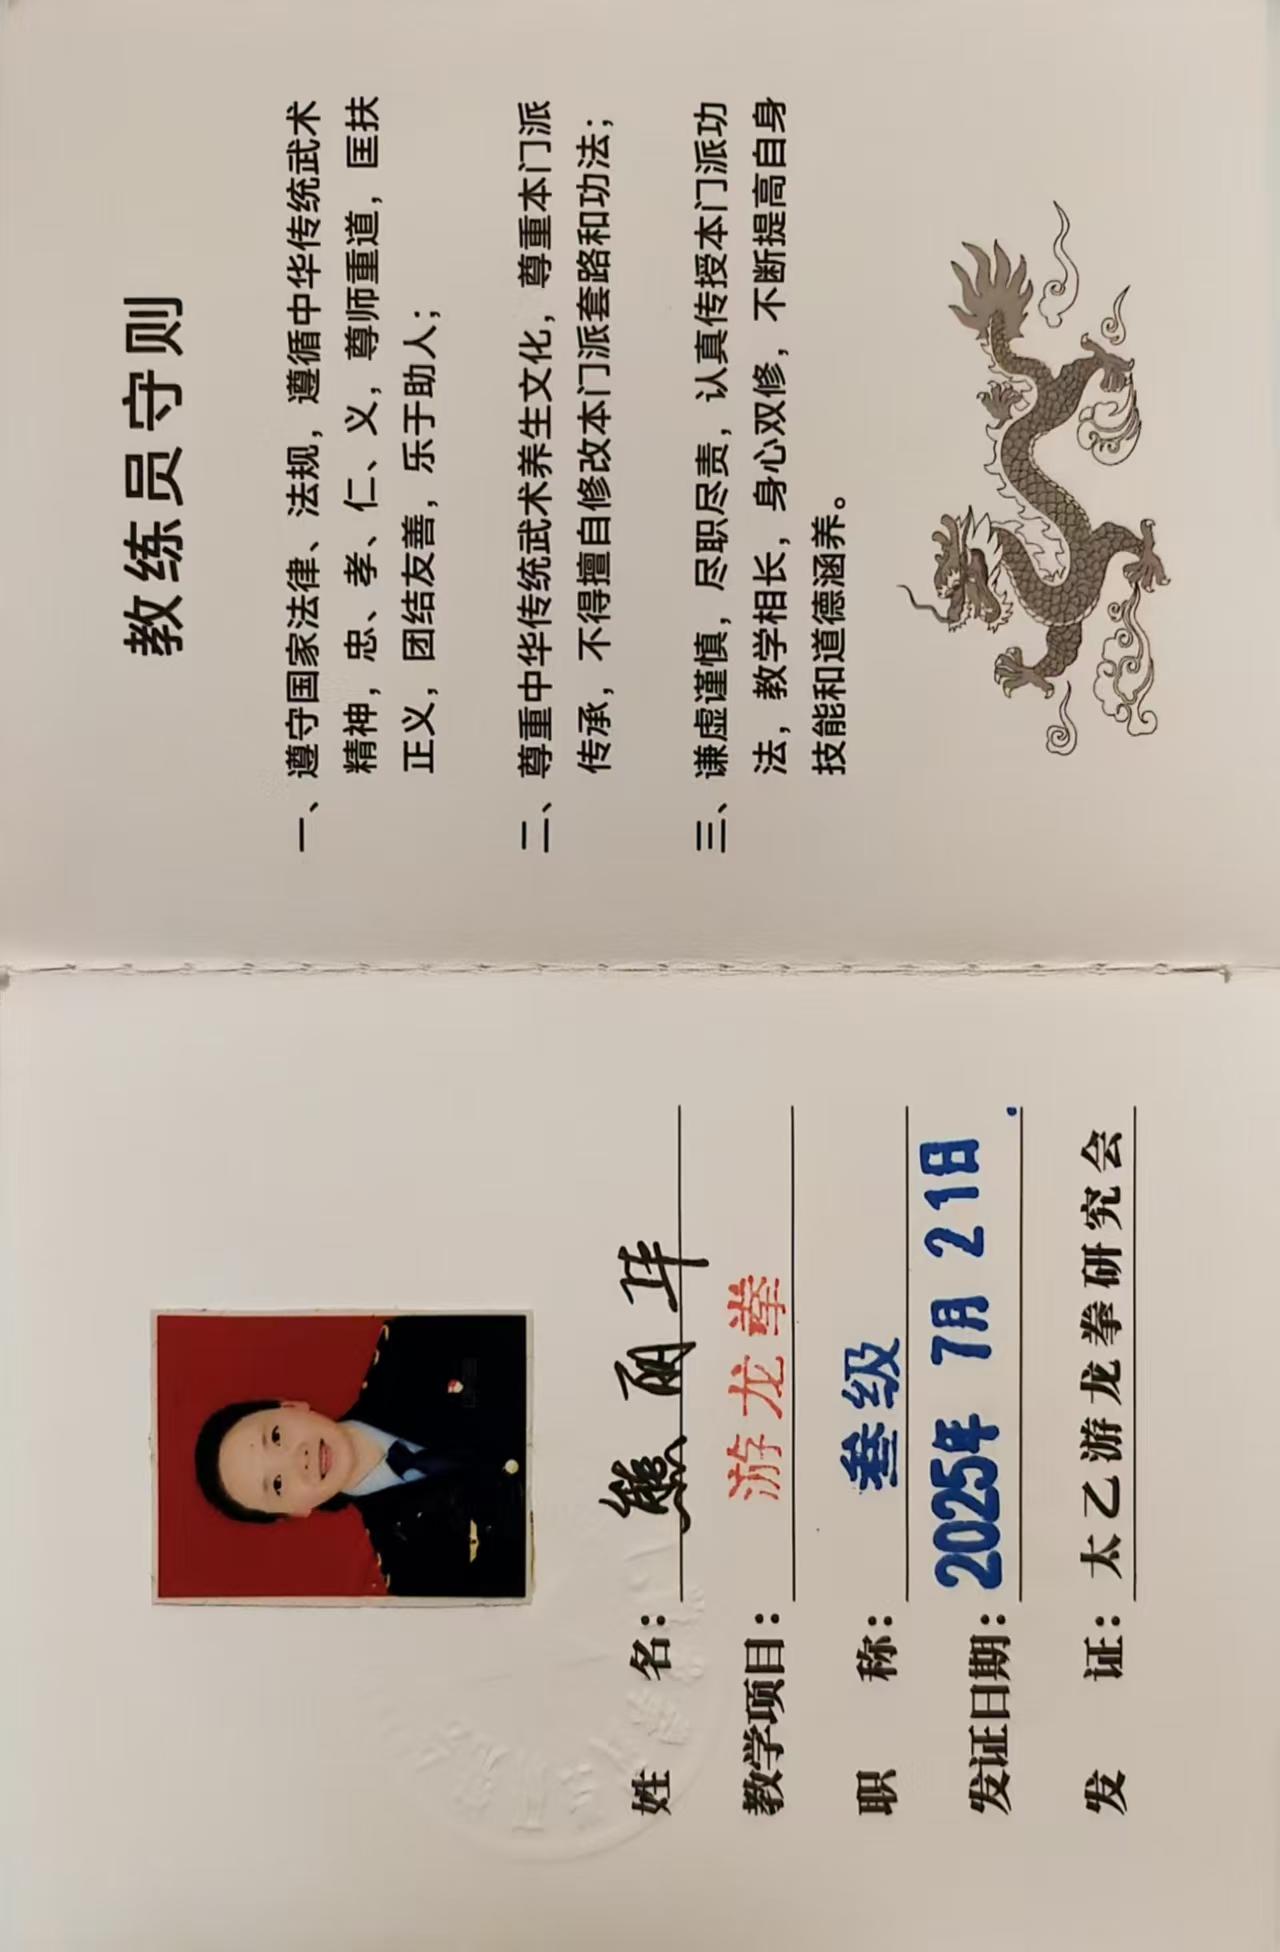 姓 名：熊丽华
教学项目：游龙拳
职 称：叁级
发证日期：2025年 7月 21日
发 证：太乙游龙拳研究会
教练员守则
一、遵守国家法律、法规，遵循中华传统武术
精神，忠、孝、仁、义，尊师重道，匡扶
正义，团结友善，乐于助人；
二、尊重中华传统武术养生文化，尊重本门派
传承，不得擅自修改本门派套路和功法；
三、谦虚谨慎，尽职尽责，认真传授本门派功
法，教学相长，身心双修，不断提高自身
技能和道德涵养。